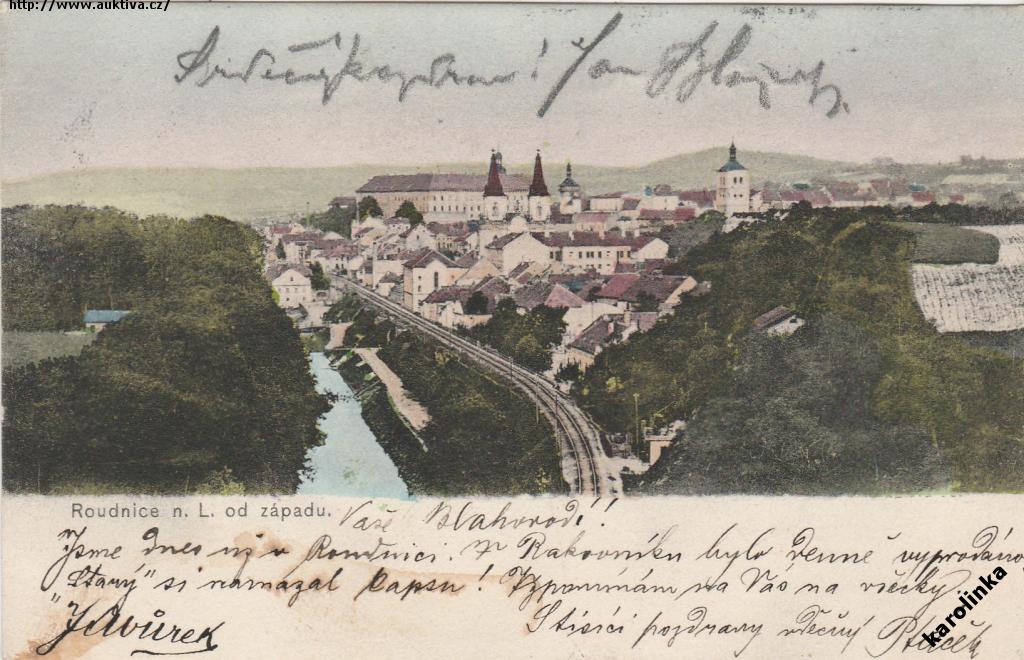 http://www.auktiva.cz/
Srdečný pozdrav! Jan
Roudnice n. L. od západu.
Vaše Blahorodí!
Jsme dnes už v Roudnici. V Rakovníku bylo denně vyprodáno
"Starý" si namazal kapsu! Vzpomínám na Vás na všecky.
Stísící pozdravy vděčný Ptáček
JAvůrek
karolinka